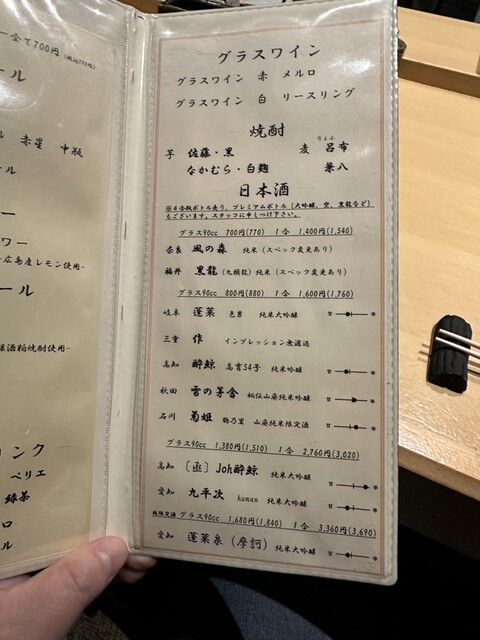 ー全て700円(税込770円)
ール
赤星 中瓶
ール
ー
ワー
-広島産レモン使用-
ール
酒粕焼酎使用-
ンク
ペリエ
緑茶
ロ
ル
グラスワイン
グラスワイン 赤 メルロ
グラスワイン 白 リースリング
焼酎
芋 佐藤・黒 麦 呂布
りょふ
なかむら・白麹 兼八
日本酒
※4合瓶ボトル売り、プレミアムボトル(大吟醸、空、黒龍など)
もございます。スタッフに申しつけ下さい。
グラス90cc 700円(770) 1合 1,400円(1,540)
奈良 風の森 純米(スペック変更あり)
福井 黒龍(九頭龍)純米(スペック変更あり)
グラス90cc 800円(880) 1合 1,600円(1,760)
岐阜 蓬莱 色男 純米大吟醸
三重 作 インプレッション無濾過
高知 酔鯨 高育54号 純米吟醸
秋田 雪の茅舎 秘伝山廃純米吟醸
石川 菊姫 鶴乃里 山廃純米限定酒
グラス90cc 1,380円(1,510) 1合 2,760円(3,020)
高知 [函] Joh酔鯨 純米大吟醸
愛知 九平次 human 純米大吟醸
グラス90cc 1,680円(1,840) 1合 3,360円(3,690)
愛知 蓬莱泉(摩訶) 純米大吟醸